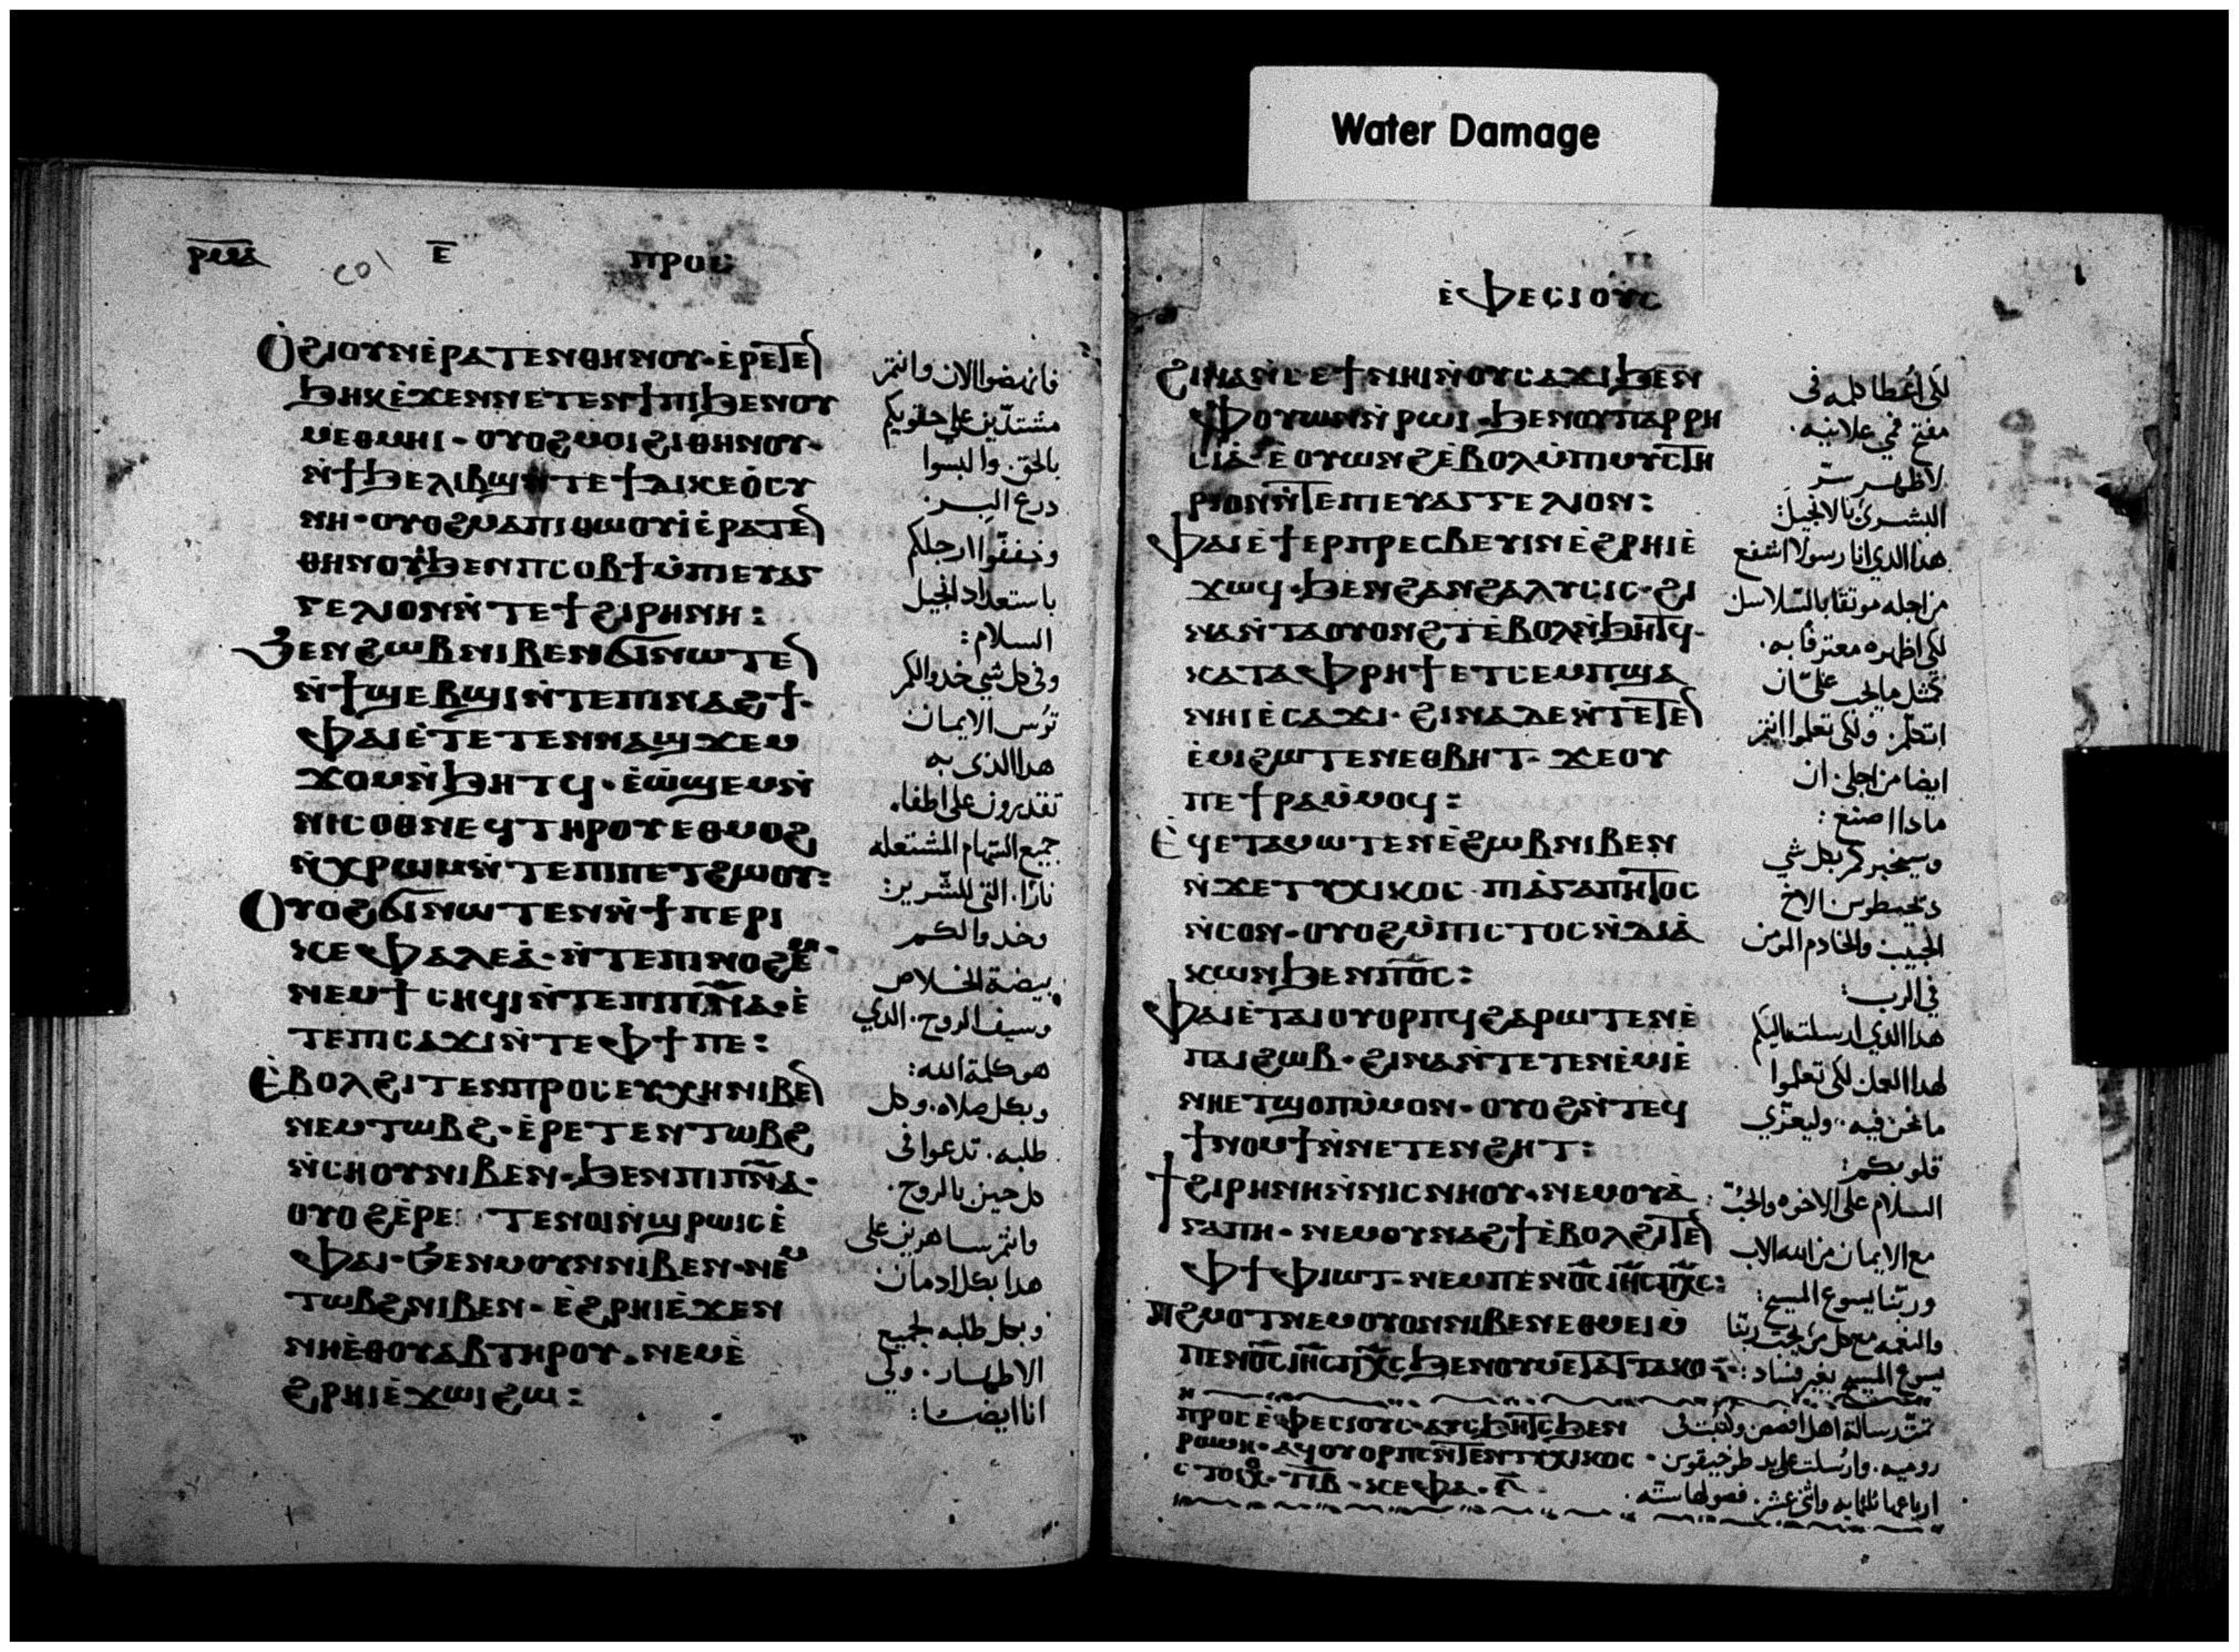 Water Damage
ⲣⲙⲁ
ⲉ̅
ⲡⲣⲟⲥ
ⲟ̀ϩⲓⲟⲩⲛⲉ̀ⲣⲁⲧⲉⲛⲑⲏⲛⲟⲩ·ⲉ̀ⲣⲉⲧⲉ
ⲃⲏⲕⲉ̀ϫⲉⲛⲛⲉⲧⲉⲛϯⲡⲓϧⲉⲛⲟⲩ
ⲙⲉⲑⲙⲏⲓ·ⲟⲩⲟϩⲙⲟⲓϩⲓⲑⲏⲛⲟⲩ·
ⲛ̀ϯϧⲉⲗⲓⲃϣⲛ̀ⲧⲉϯⲇⲓⲕⲉⲟ̀ⲥⲩ
ⲛⲏ·ⲟⲩⲟϩⲙⲁⲡⲓⲑⲱⲟⲩⲓ̀ⲉ̀ⲣⲁⲧⲉ
ⲑⲏⲛⲟⲩϧⲉⲛⲡⲥⲟⲃϯⲙ̀ⲡⲓⲉⲩⲁⲅ
ⲅⲉⲗⲓⲟⲛⲛ̀ⲧⲉϯϩⲓⲣⲏⲛⲏ:
ϧⲉⲛϩⲱⲃⲛⲓⲃⲉⲛϭⲓⲛⲱⲧⲉ
ⲛ̀ϯϣⲉⲃϣⲓⲛ̀ⲧⲉⲡⲓⲛⲁϩϯ·
ⲫⲁⲓⲉ̀ⲧⲉⲧⲉⲛⲛⲁϣϫⲉⲙ
ϫⲟⲙⲛ̀ϧⲏⲧϥ·ⲉ̀ⲱ̀ϣⲉⲙⲛ̀
ⲛⲓⲥⲟⲑⲛⲉϥⲧⲏⲣⲟⲩⲉⲑⲙⲟϩ
ⲛ̀ⲭⲣⲱⲙⲛ̀ⲧⲉⲡⲓⲡⲉⲧϩⲱⲟⲩ:
ⲟⲩⲟϩϭⲓⲛⲱⲧⲉⲛⲛ̀ϯⲡⲉⲣⲓ
ⲕⲉⲫⲁⲗⲉⲁ̀·ⲛ̀ⲧⲉⲡⲓⲛⲟϩⲉⲙ·
ⲛⲉⲙϯⲥⲏϥⲓⲛ̀ⲧⲉⲡⲓⲡ̅ⲛ̅ⲁ·ⲉ̀
ⲧⲉⲡⲓⲥⲁϫⲓⲛ̀ⲧⲉⲫϯⲡⲉ:
ⲉ̀ⲃⲟⲗϩⲓⲧⲉⲛⲡⲣⲟⲥⲉⲩⲭⲏⲛⲓⲃⲉ
ⲛⲉⲙⲧⲱⲃϩ·ⲉ̀ⲣⲉⲧⲉⲛⲧⲱⲃϩ
ⲛ̀ⲥⲏⲟⲩⲛⲓⲃⲉⲛ·ϧⲉⲛⲡⲓⲡ̅ⲛ̅ⲁ·
ⲟⲩⲟϩⲉ̀ⲣⲉ ⲧⲉⲛⲟⲓⲛ̀ϣⲣⲱⲓⲥⲉ̀
ⲫⲁⲓ·ϧⲉⲛⲙⲟⲩⲛⲛⲓⲃⲉⲛ·ⲛⲉⲙ
ⲧⲱⲃϩⲛⲓⲃⲉⲛ·ⲉ̀ϩⲣⲏⲓⲉ̀ϫⲉⲛ
ⲛⲏⲉ̀ⲑⲟⲩⲁⲃⲧⲏⲣⲟⲩ·ⲛⲉⲙⲉ̀
ϩⲣⲏⲓⲉ̀ϫⲱⲓϩⲱ:
فانهضوا الان وانتم
مشتدّين علي حقويكم
بالحق. والبسوا
درع البر.
وخففوا ارجلكم
باستعداد انجيل
السلام:
وفي كل شي خدوا لكم
ترس الايمان
هدا الذي به
تقدرون علي اطفاء
جميع السهام المشتعله
نارًا. التي للشرير:
وخدوا لكم
بيضة الخلاص
وسيف الروح. الدي
هو كلمة الله:
وبكل صلاه. وكل
طلبه. تدعوا في
كل حين بالروح.
وانتم ساهرين علي
هدا بكل ادمان
وبكل طلبه لجميع
الاطهار. ولي
انا ايضا:
ⲉ̀ⲫⲉⲥⲓⲟⲩⲥ
ϩⲓⲛⲁⲛ̀ⲥⲉϯⲛⲏⲓⲛ̀ⲟⲩⲥⲁϫⲓϧⲉⲛ
ⲫⲟⲩⲱⲛⲛ̀ⲣⲱⲓ·ϧⲉⲛⲟⲩⲡⲁⲣⲣⲏ
ⲥⲓⲁ̀ⲉ̀ⲟⲩⲱⲛϩⲉ̀ⲃⲟⲗⲙ̀ⲡⲓⲙⲩⲥⲧⲏ
ⲣⲓⲟⲛⲛ̀ⲧⲉⲡⲓⲉⲩⲁⲅⲅⲉⲗⲓⲟⲛ:
ⲫⲁⲓⲉ̀ϯⲉⲣⲡⲣⲉⲥⲃⲉⲩⲓⲛⲉ̀ϩⲣⲏⲓⲉ̀
ϫⲱϥ·ϧⲉⲛϩⲁⲛϩⲁⲗⲩⲥⲓⲥ·ϩⲓ
ⲛⲁⲛ̀ⲧⲁⲟⲩⲟⲛϩⲧⲉ̀ⲃⲟⲗⲛ̀ϧⲏⲧϥ·
ⲕⲁⲧⲁⲫⲣⲏϯⲉⲧⲥⲉⲙⲡϣⲁ
ⲛⲏⲓⲉ̀ⲥⲁϫⲓ·ϩⲓⲛⲁⲇⲉⲛ̀ⲧⲉⲧⲉ
ⲉ̀ⲙⲓϩⲱⲧⲉⲛⲉⲑⲃⲏⲧ·ϫⲉⲟⲩ
ⲡⲉϯⲣⲁⲙ̀ⲙⲟϥ:
ⲉ̀ϥⲉⲧⲁⲙⲱⲧⲉⲛⲉ̀ϩⲱⲃⲛⲓⲃⲉⲛ
ⲛ̀ϫⲉⲧⲩⲭⲓⲕⲟⲥ·ⲡⲓⲁ̀ⲅⲁⲡⲏⲧⲟⲥ
ⲛ̀ⲥⲟⲛ·ⲟⲩⲟϩⲙ̀ⲡⲓⲥⲧⲟⲥⲛ̀ⲇⲓⲁ̀
ⲕⲱⲛϧⲉⲛⲡ̅ⲟ̅ⲥ:
ⲫⲁⲓⲉ̀ⲧⲁⲓⲟⲩⲟⲣⲡϥϩⲁⲣⲱⲧⲉⲛⲉ̀
ⲡⲁⲓϩⲱⲃ·ϩⲓⲛⲁⲛ̀ⲧⲉⲧⲉⲛⲉ̀ⲙⲓⲉ̀
ⲛⲏⲉⲧϣⲟⲡⲙ̀ⲙⲟⲛ·ⲟⲩⲟϩⲛ̀ⲧⲉϥ
ϯⲛⲟⲙϯⲛ̀ⲛⲉⲧⲉⲛϩⲏⲧ:
ϯϩⲓⲣⲏⲛⲏⲛ̀ⲛⲓⲥⲛⲏⲟⲩ·ⲛⲉⲙⲟⲩⲁ̀
ⲅⲁⲡⲏ·ⲛⲉⲙⲟⲩⲛⲁϩϯⲉ̀ⲃⲟⲗϩⲓⲧⲉ
ⲫϯⲫⲓⲱⲧ·ⲛⲉⲙⲡⲉⲛⲟ̅ⲥ̅ⲓⲏ̅ⲥ̅ⲡⲭ̅ⲥ̅:
ⲡⲓϩⲙⲟⲧⲛⲉⲙⲟⲩⲟⲛⲛⲓⲃⲉⲛⲉⲑⲙⲉⲓⲙ̀
ⲡⲉⲛⲟ̅ⲥ̅ⲓⲏ̅ⲥ̅ⲡⲭ̅ⲥ̅ϧⲉⲛⲟⲩⲙⲉⲧⲁⲧⲧⲁⲕⲟ
ⲡⲣⲟⲥⲉ̀ⲫⲉⲥⲓⲟⲩⲥ·ⲁⲩⲥϧⲏⲧⲥϧⲉⲛ
ⲣⲱⲙⲏ·ⲁϥⲟⲩⲟⲣⲡⲥⲛ̀ⲧⲉⲛⲧⲩⲭⲓⲕⲟⲥ·
ⲥⲧⲟⲓⲭ·ⲧⲓⲃ·ⲕⲉⲫⲁ·ⲋ̅
لكي اعطا كلمه في
مفتح فمي علانيه.
لاظهر سرّ
البشري بالانجيل:
هدا الدي انا رسولا اشفع
من اجله موثقا بالسلاسل
لكي اظهره معترفا به.
كمثل ما يجب علي ان
اتكلم. ولكي تعلموا انتم
ايضا من اجلي ان
مادا اصنع:
وسيخبركم بكل شي
الاخ
الحبيب والخادم المومن
في الرب:
هدا الدي ارسلت اليكم
لهدا العمل لكي تعلموا
ما نحن فيه. وليعزّي
قلوبكم:
السلام علي الاخوه والحب
مع الايمان من الله الاب
وربّنا يسوع المسيح:
والنعمه مع كل من يحب ربّنا
يسوع المسيح بغير فساد:
تمت رسالة اهل افسس وكتبت في
روميه. وارسلت علي يد طوخيقوس.
ارباعها ثلثمايه واثني عشر. فصولها سته.